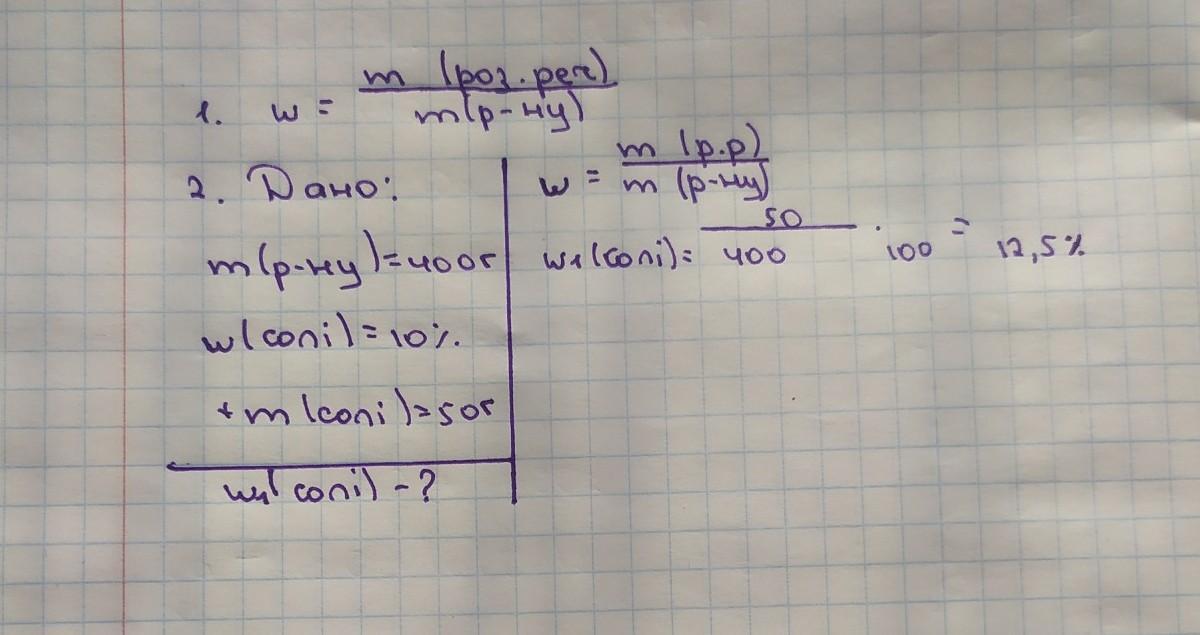 1. w = m (роз. реч) / m(р-ну)
2. Дано:
m(р-ну)=400г
w(солі)=10%.
+ m(солі)=50г
w₁(солі) - ?
w = m (р.р) / m (р-ну)
w₁(солі)= 50 / 400 · 100 = 12,5%